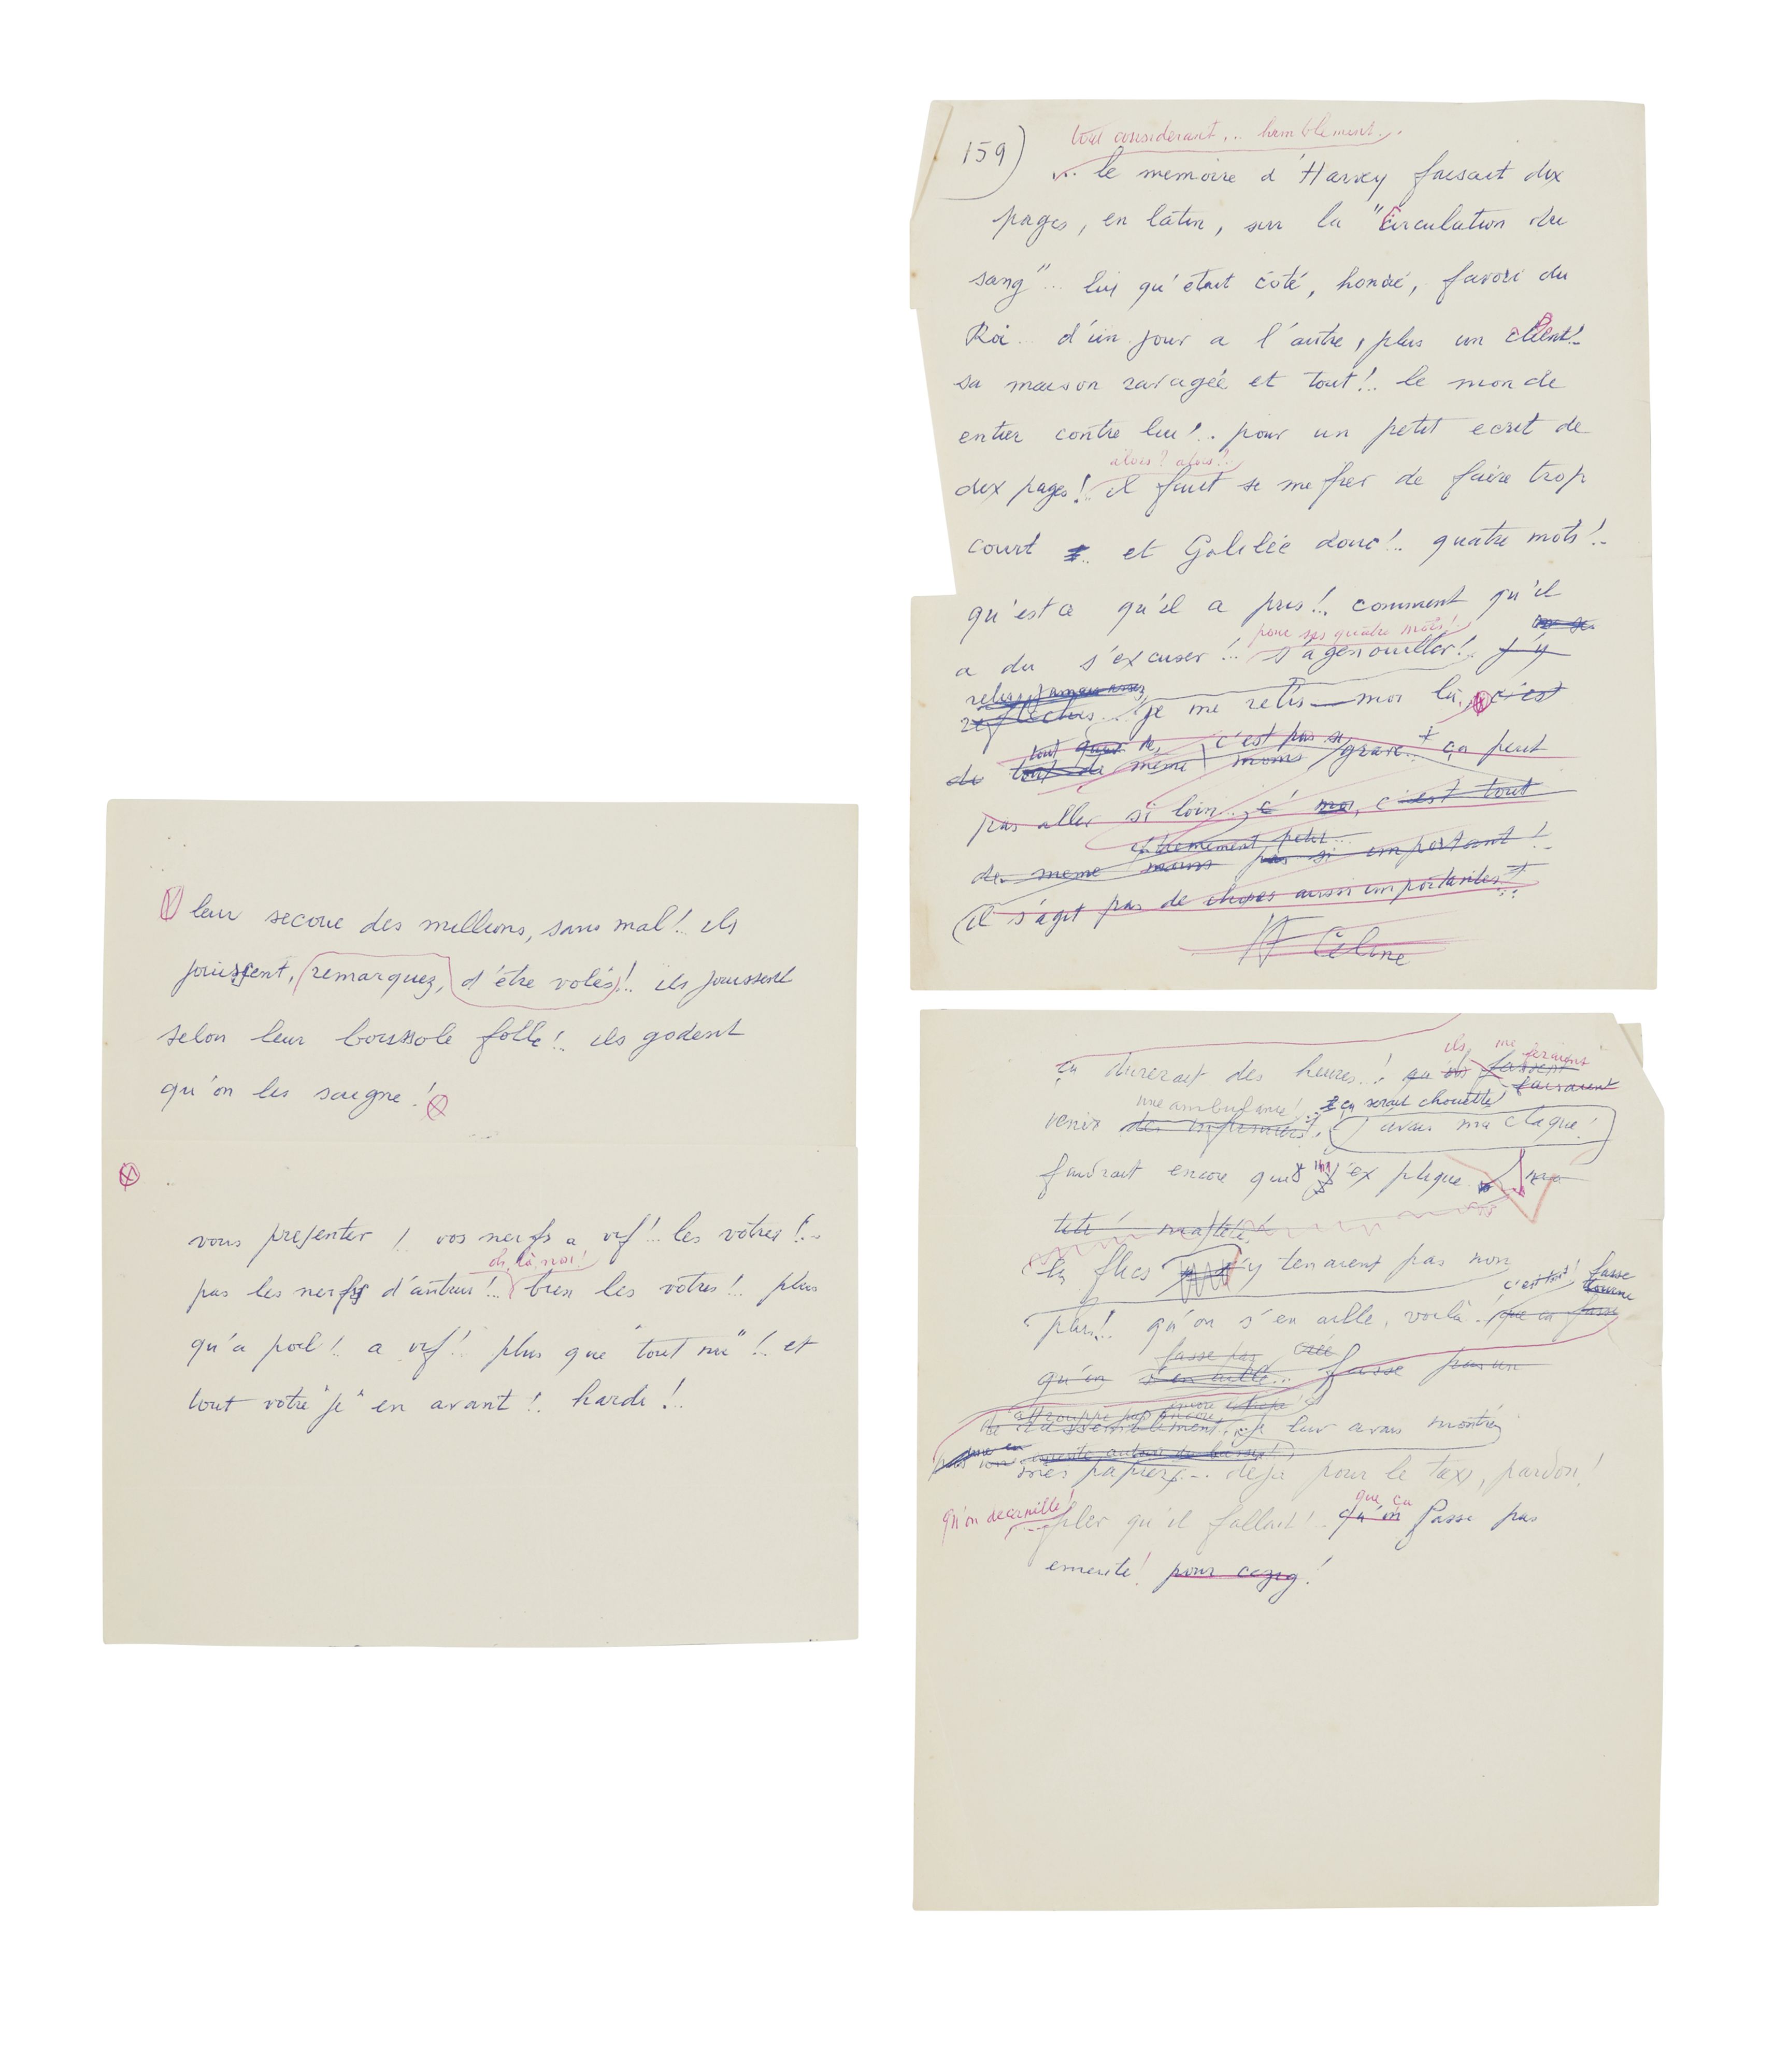 leur secoue des millions, sans mal!.. ils
jouissent, remarquez, d'être volés!.. ils jouissent
selon leur boussole folle!.. ils godent
qu'on les saigne!
vous presenter! vos nerfs a vif!.. les vôtres!..
oh, là, moi!
pas les nerfs d'autrui!.. bien les vôtres!.. plus
qu'a poil!.. a vif!.. plus que "tout nu"!.. et
tout votre "je" en avant!.. hardi!..
159)
tout considerant... humblement...
... le memoire d'Harvey faisait dix
pages, en latin, sur la "Circulation du
sang"... lui qu'etait côté, honoré, favori du
Roi... d'un jour a l'autre, plus un client!..
sa maison ravagée et tout!.. le monde
entier contre lui!.. pour un petit ecrit de
alors? alors?..
dix pages!.. il faut se mefier de faire trop
court... et Galilée donc!.. quatre mots!..
qu'est ce qu'il a pris!.. comment qu'il
pour ses quatre mots!
a du s'excuser!... s'agenouiller!.. j'y
reflechis... je me relis moi là, c'est
tout de, c'est pas si
du tout de même moins grave!.. ça peut
pas aller si loin... c' moi, c'est tout
extremement petit...
de meme moins pas si important!..
il s'agit pas de choses aussi importantes!..
LF Céline
ils me feraient
ça durerait des heures..! qu'ils fassent
faisaient
une ambulance! ça serait chouette!
venir des infirmiers!.. j'avais ma claque!
faudrait encore que j'explique
têtê! ma têtê!
les flics y tenaient pas non
c'est tout! fasse
plus!.. qu'on s'en aille, voilà! que ça fasse
fasse pas
qu'on s'en aille... fasse pas un
attrouppe pas encore
de rassemblement... je leur avais montré
emeute autour du bassin!
mes papiers... deja pour le taxi, pardon!
qu'on decanille!
filer qu'il fallait!.. qu'on
que ça
fasse pas
emeute! pour cezig!